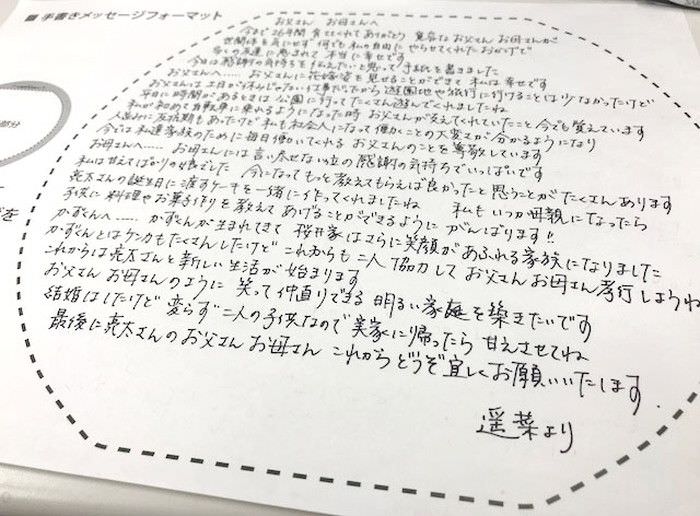 ■ 手書きメッセージフォーマット
お父さん お母さんへ
今まで26年間 育ててくれてありがとう 寛容なお父さん お母さんが
世間体を気にせず 何でも私の自由に やらせてくれた おかげで
多くの友達に恵まれて 本当に幸せです
今日は感謝の気持ちを 伝えたいと思って 手紙を書きました
お父さんへ…… お父さんに花嫁姿を見せることができて 私は幸せです
お父さんは土日が休みじゃない仕事だったから 遊園地や旅行に行けることは少なかったけど
平日に時間があるときは 公園に行ってたくさん遊んでくれましたね
私が初めて自転車に乗れるようになった時 お父さんが支えてくれていたこと 今でも覚えています
人並みに反抗期もあったけど 私も社会人になって働くことの大変さが分かるようになり
今では私達家族のために毎日働いてくれる お父さんのことを尊敬しています
お母さんへ…… お母さんには言い尽せない位の感謝の気持ちでいっぱいです
私は甘えてばかりの娘でした 今になってもっと教えてもらえば良かったと思うことがたくさんあります
亮太さんの誕生日に渡すケーキを一緒に作ってくれましたね 私もいつか母親になったら
子供に料理やお菓子作りを教えてあげることができるように がんばります!!
かずくんへ…… かずくんが生まれてきて 桜井家はさらに笑顔があふれる家族になりました
かずくんとはケンカもたくさんしたけど これからも二人協力して お父さんお母さん孝行しようね
これからは亮太さんと新しい生活が始まります
お父さん お母さんのように 笑って仲直りできる 明るい家庭を築きたいです
結婚はしたけど 変らず二人の子供なので 実家に帰ったら 甘えさせてね
最後に亮太さんのお父さん お母さん これからどうぞ宜しくお願いいたします.
遥菜より
部分
を